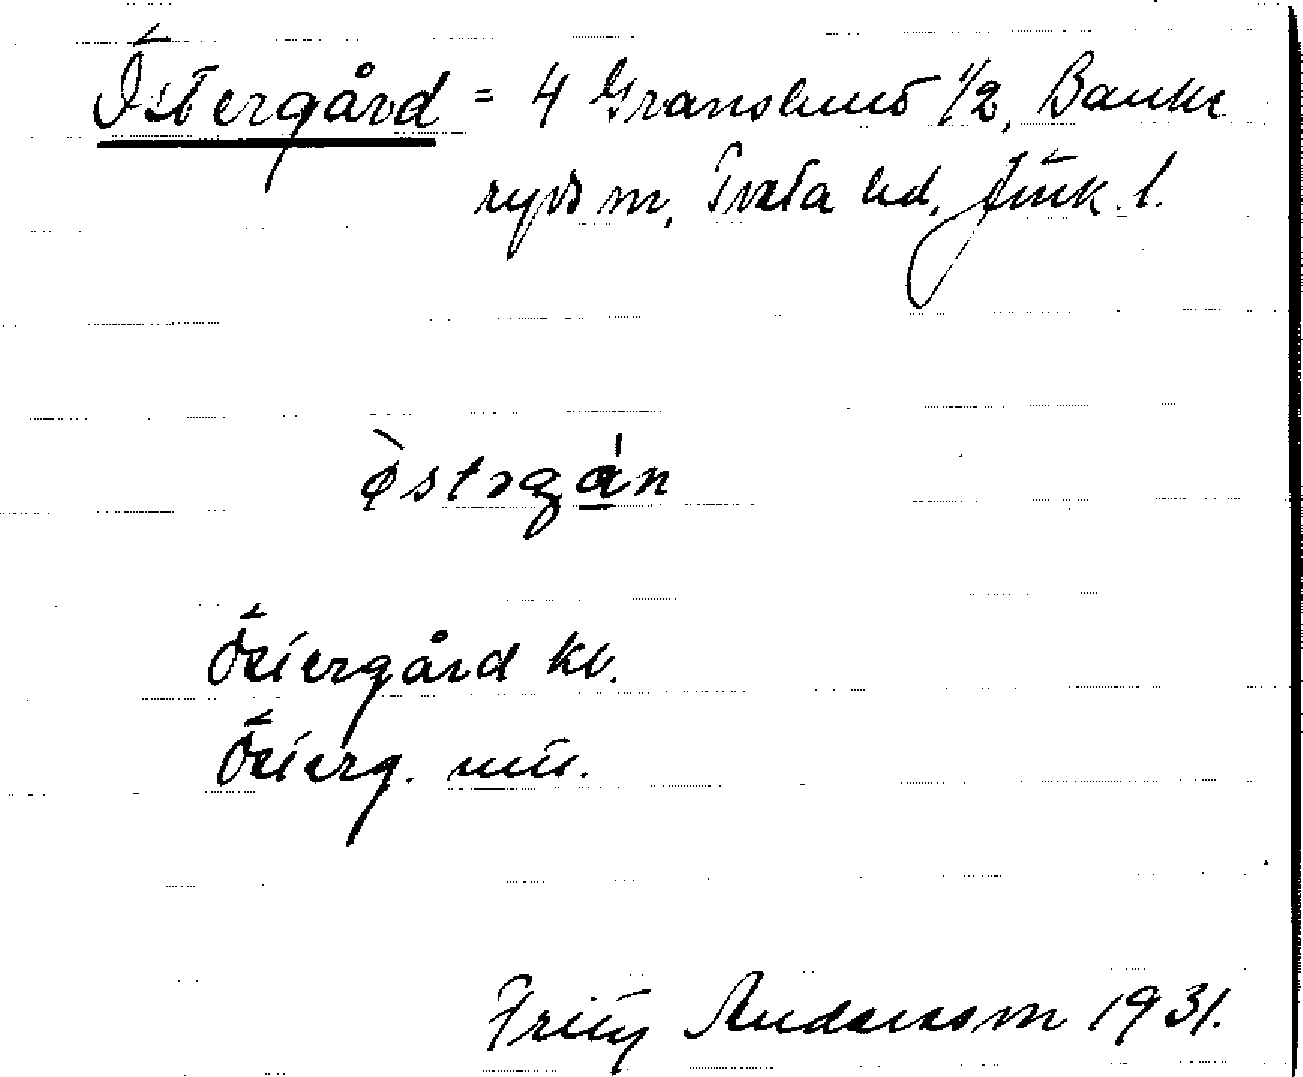 Östergård = 4 Granslund 1/2, Banke
ryds sn, Tveta hd, Jönk. l.
östərgán
Östergård kb.
Österg. mtl.
Fritz Andersson 1931.